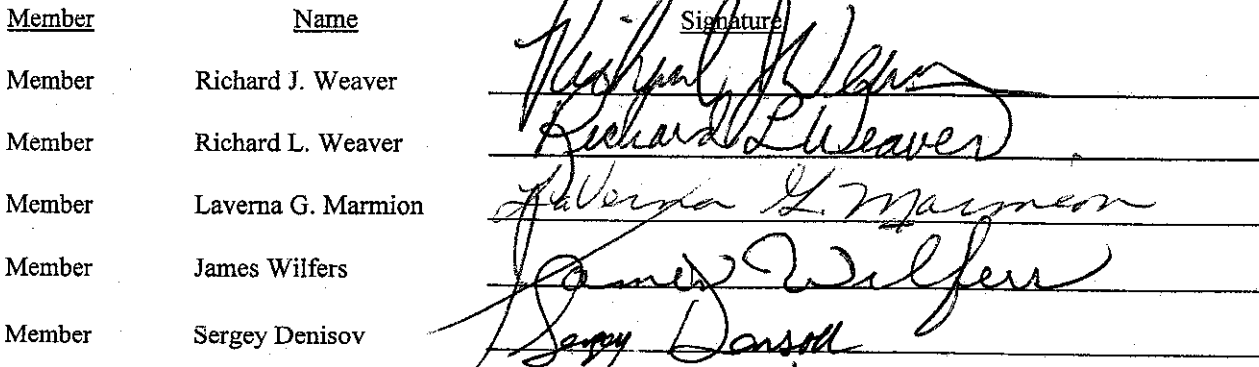 Member Name Signature
Member Richard J. Weaver Richard J Weaver
Member Richard L. Weaver Richard L Weaver
Member Laverna G. Marmion LaVerna G. Marmion
Member James Wilfers James Wilfers
Member Sergey Denisov Sergey Denisov